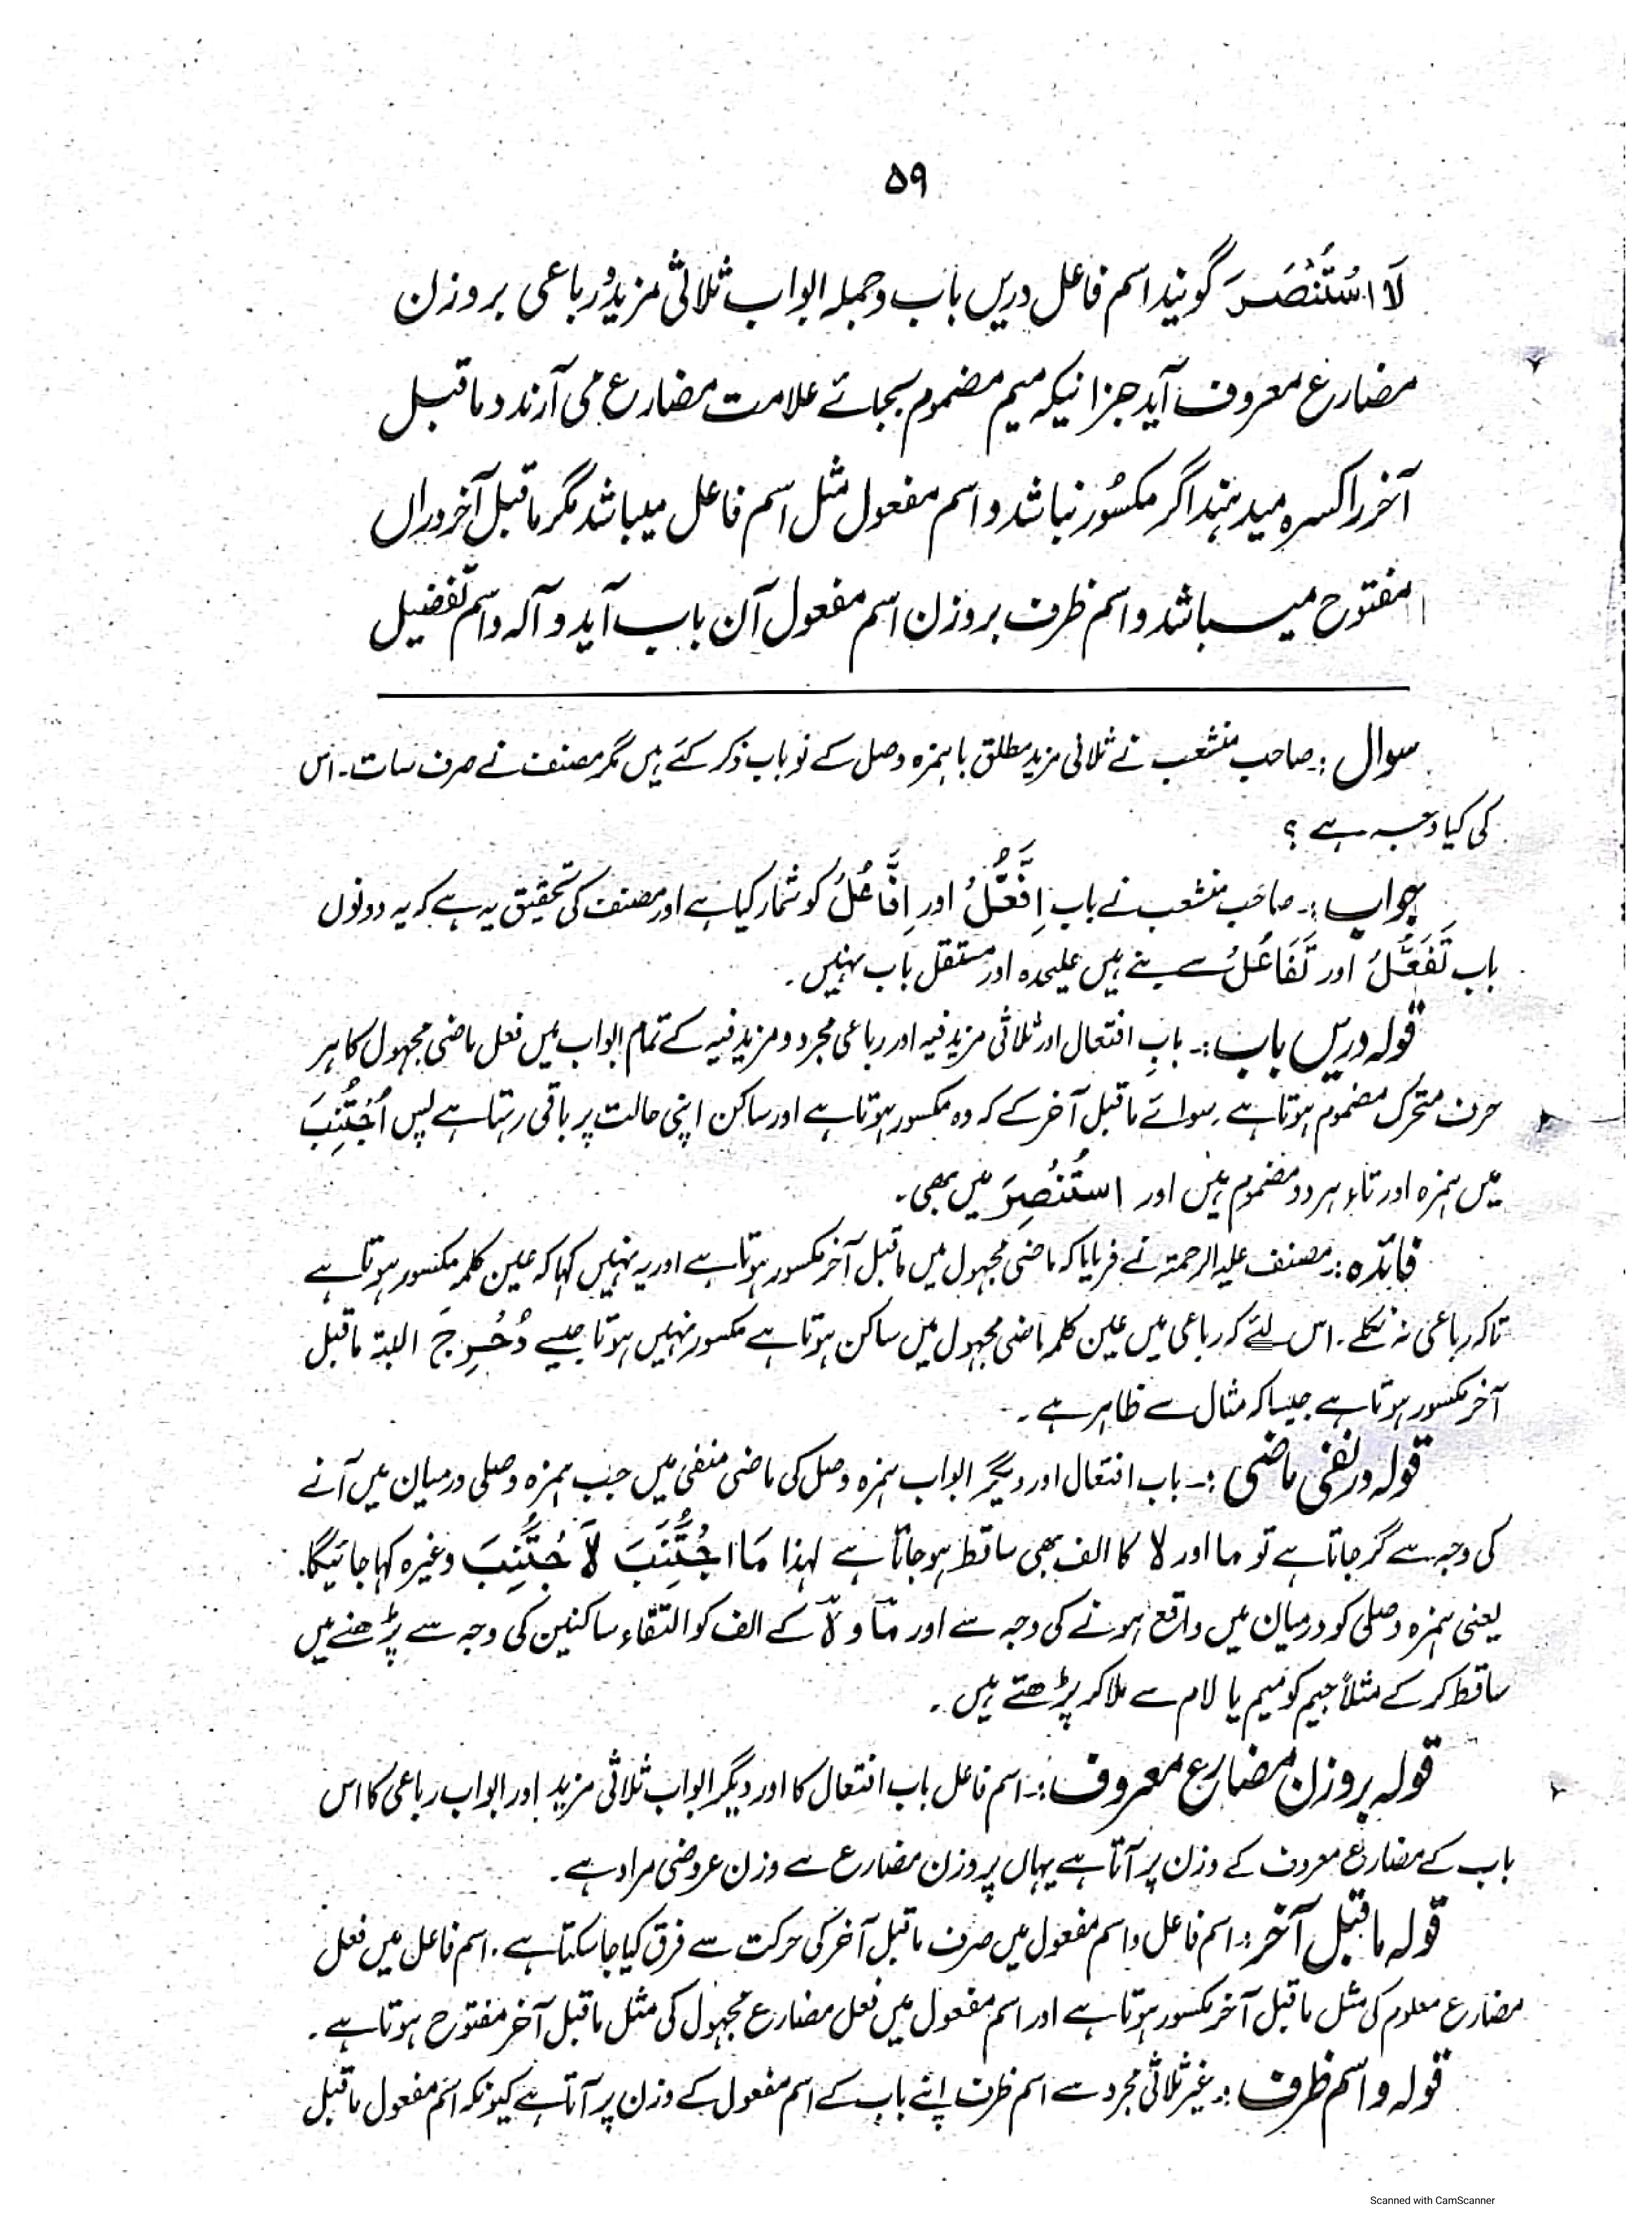 ۵۹
لَا اسْتُنْصِرَ گویند اسم فاعل دریں باب وجملہ ابواب ثلاثی مزید و رباعی بروزن
مضارع معروف آید جز انیکہ میم مضموم بجائے علامت مضارع می آرند و ماقبل
آخر را کسرہ میدہند اگر مکسُور نباشد و اسم مفعول مثل اسم فاعل میباشد مگر ماقبل آخر دراں
مفتوح میباشد و اسم ظرف بروزن اسم مفعول آن باب آید و آلہ و اسم تفضیل
سوال :۔ صاحب منشعب نے ثلاثی مزید مطلق باہمزہ وصل کے نو باب ذکر کئے ہیں مگر مصنف نے صرف سات۔ اس
کی کیا وجہ ہے ؟
جواب :۔ صاحب منشعب نے باب اِفَّعُّلُ اور اِفَّاعُلُ کو شمار کیا ہے اور مصنف کی تحقیق یہ ہے کہ یہ دونوں
باب تَفَعُّلُ اور تَفَاعُلُ سے بنے ہیں علیحدہ اور مستقل باب نہیں ۔
قولہ دریں باب :۔ بابِ افتعال اور ثلاثی مزید فیہ اور رباعی مجرد و مزید فیہ کے تمام ابواب میں فعل ماضی مجہول کا ہر
حرف متحرک مضموم ہوتا ہے ۔ سوائے ماقبل آخر کے کہ وہ مکسور ہوتا ہے اور ساکن اپنی حالت پر باقی رہتا ہے پس اُجْتُنِبَ
میں ہمزہ اور تاء ہر دو مضموم ہیں اور اسْتُنْصِرَ میں بھی ۔
فائدہ :۔ مصنف علیہ الرحمۃ نے فرمایا کہ ماضی مجہول میں ماقبل آخر مکسور ہوتا ہے اور یہ نہیں کہا کہ عین کلمہ مکسور ہوتا ہے
تاکہ رباعی نہ نکلے ۔ اس لئے کہ رباعی میں عین کلمہ ماضی مجہول میں ساکن ہوتا ہے مکسور نہیں ہوتا جیسے دُحْرِجَ البتہ ماقبل
آخر مکسور ہوتا ہے جیسا کہ مثال سے ظاہر ہے ۔
قولہ در نفی ماضی :۔ باب افتعال اور دیگر ابواب ہمزہ وصل کی ماضی منفی میں جب ہمزہ وصلی درمیان میں آنے
کی وجہ سے گر جاتا ہے تو ما اور لا کا الف بھی ساقط ہوجاتا ہے لہذا مَا اجْتُنِبَ لَا جْتُنِبَ وغیرہ کہا جائیگا ۔
یعنی ہمزہ وصلی کو درمیان میں واقع ہونے کی وجہ سے اور مَا و لَا کے الف کو التقاء ساکنین کی وجہ سے پڑھنے میں
ساقط کر کے مثلاً جیم کو میم یا لام سے ملا کر پڑھتے ہیں ۔
قولہ بروزن مضارع معروف :۔ اسم فاعل باب افتعال کا اور دیگر ابواب ثلاثی مزید اور ابواب رباعی کا اس
باب کے مضارع معروف کے وزن پر آتا ہے یہاں پر وزن مضارع سے وزن عروضی مراد ہے ۔
قولہ ماقبل آخر :۔ اسم فاعل و اسم مفعول میں صرف ماقبل آخر کی حرکت سے فرق کیا جاسکتا ہے ۔ اسم فاعل میں فعل
مضارع معلوم کی مثل ماقبل آخر مکسور ہوتا ہے اور اسم مفعول میں فعل مضارع مجہول کی مثل ماقبل آخر مفتوح ہوتا ہے ۔
قولہ و اسم ظرف :۔ غیر ثلاثی مجرد سے اسم ظرف اپنے باب کے اسم مفعول کے وزن پر آتا ہے کیونکہ اسم مفعول ماقبل
Scanned with CamScanner